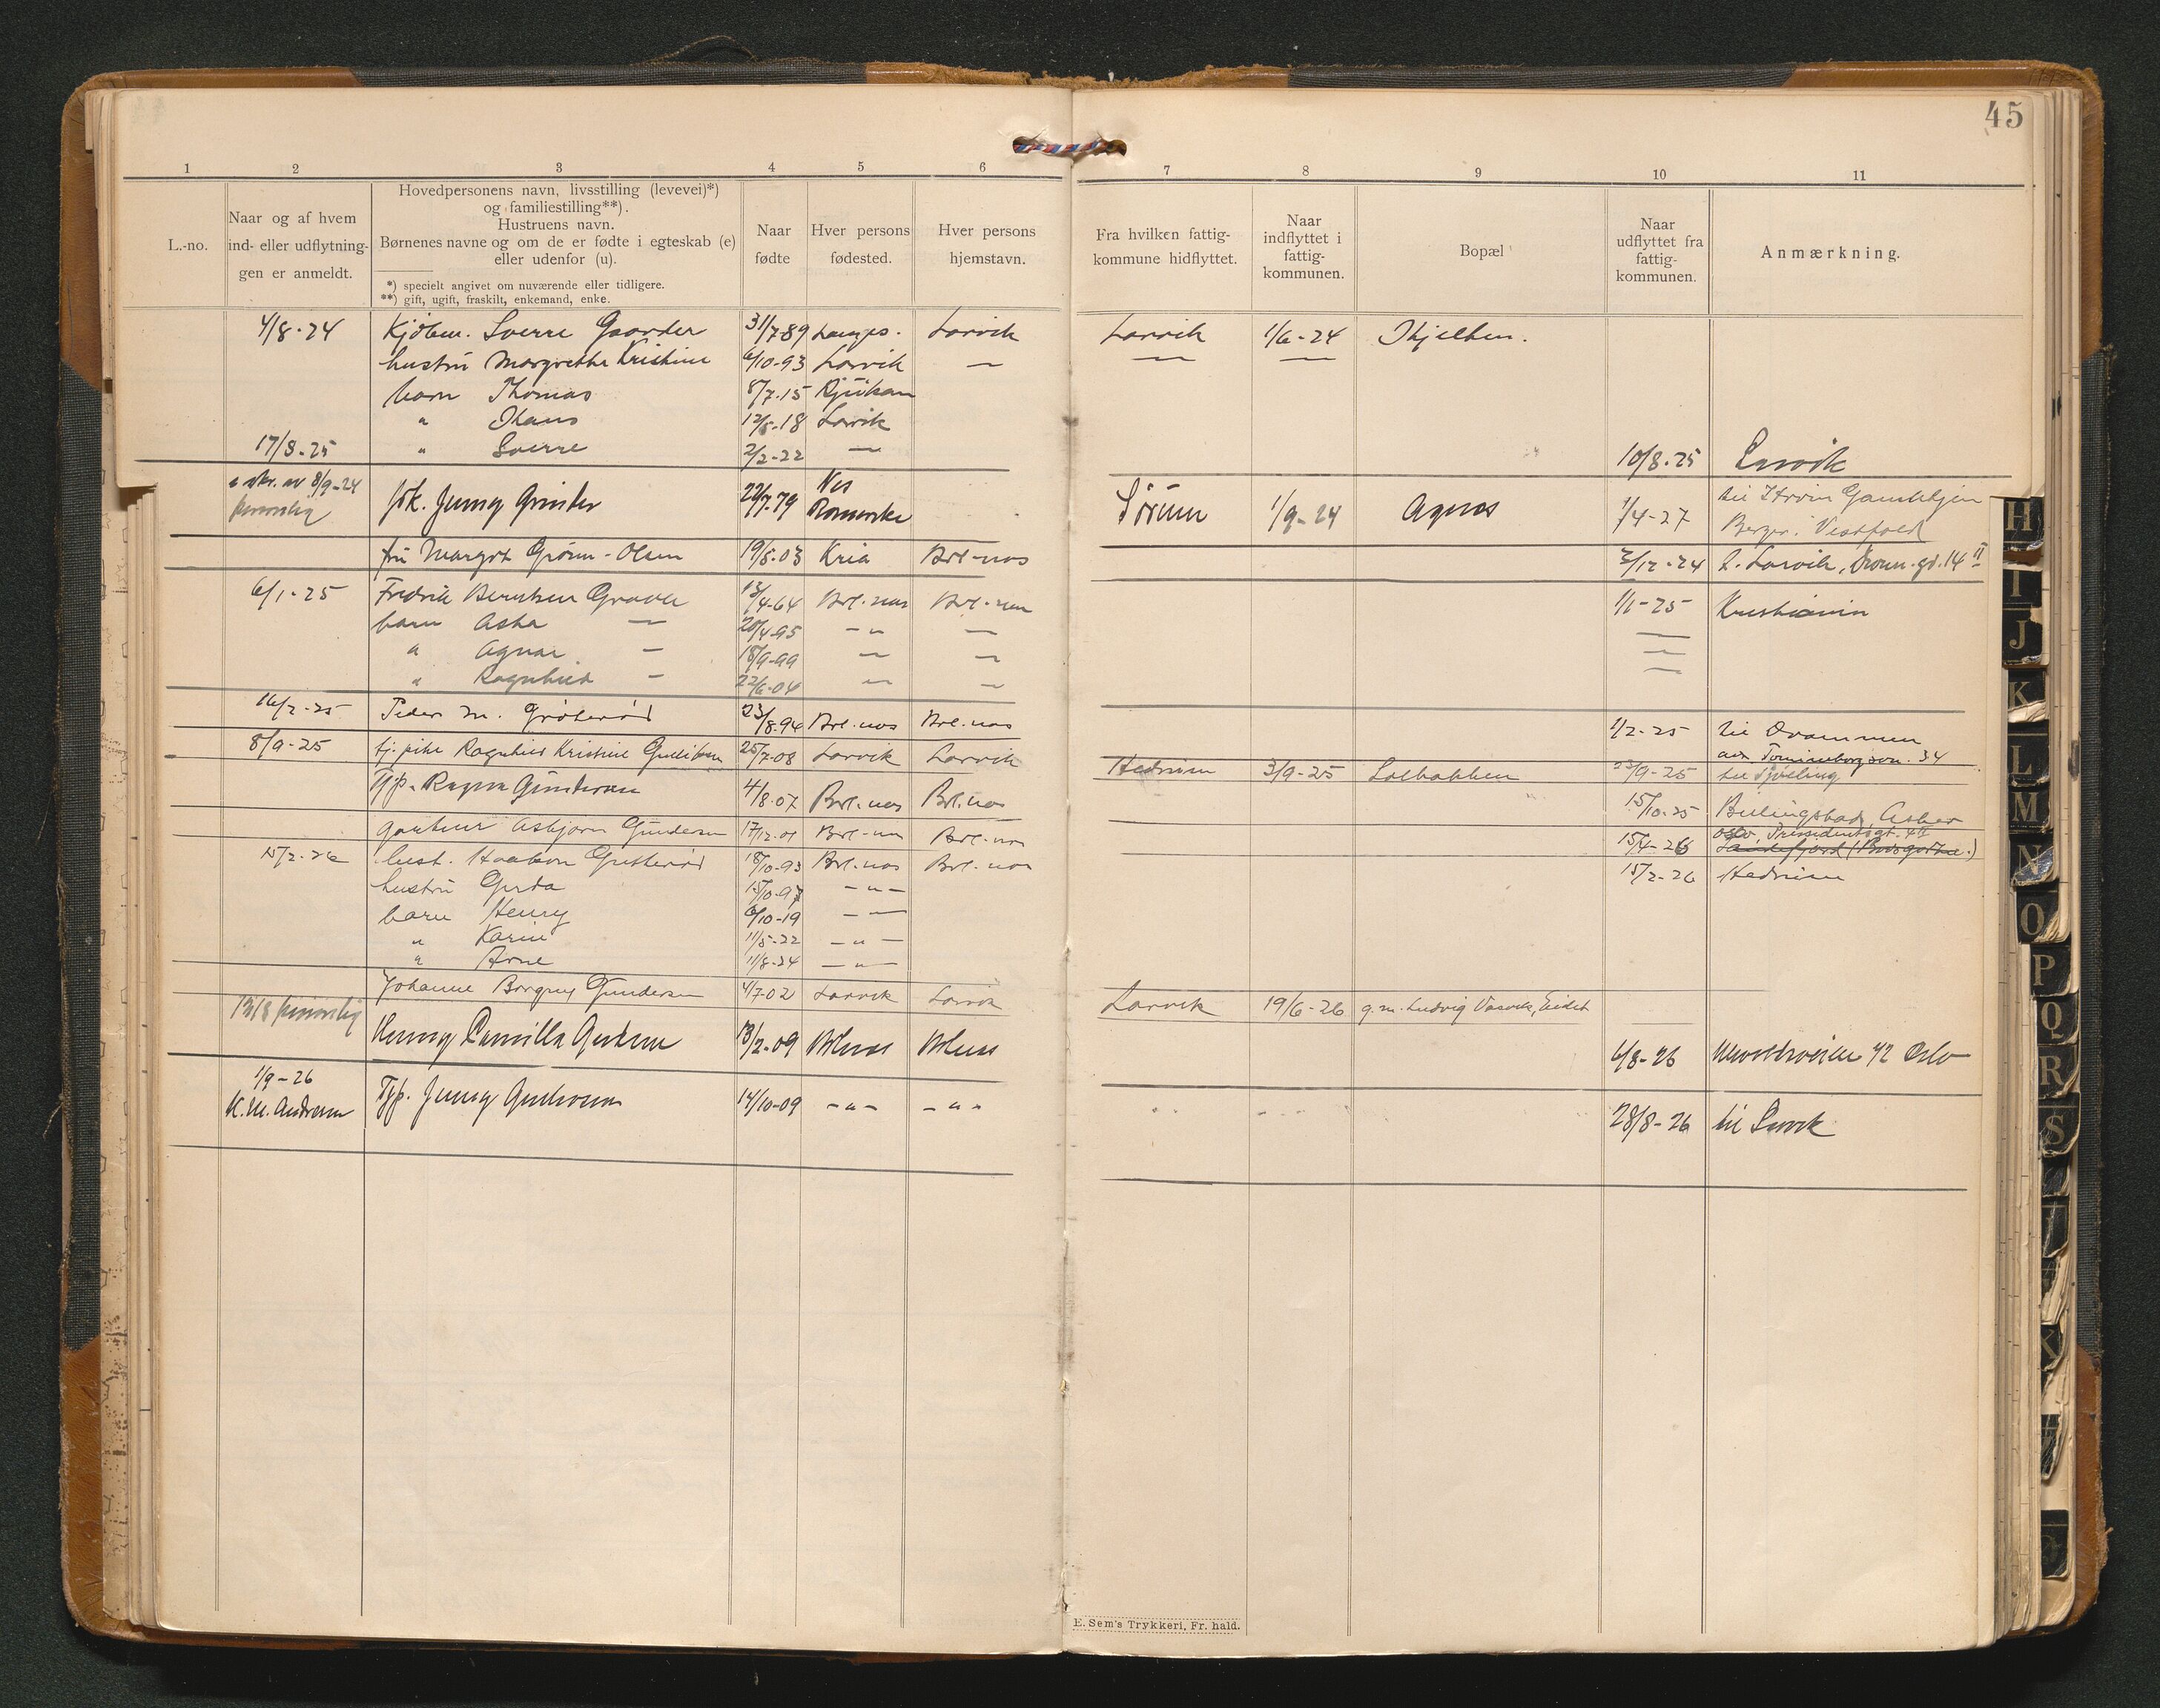 45
1 2 3 4 5 6 7 8 9 10 11
L.-no.
Naar og af hvem
ind- eller udflytnin-
gen er anmeldt.
Hovedpersonens navn, livsstilling (levevei)*)
og familiestilling**).
Hustruens navn.
Børnenes navne og om de er fødte i egteskab (e)
eller udenfor (u).
*) specielt angivet om nuværende eller tidligere.
**) gift, ugift, fraskilt, enkemand, enke.
Naar
fødte
Hver persons
fødested.
Hver persons
hjemstavn.
Fra hvilken fattig-
kommune hidflyttet.
Naar
indflyttet i
fattig-
kommunen.
Bopæl
Naar
udflyttet fra
fattig-
kommunen.
Anmærkning.
4/8-24 Kjøbm. Sverre Gaarder 31/7-89 Larvik Larvik 1/6-24
hustru Margrethe Kristine 6/10-93 Larvik — — —
barn Thomas 8/7-15 Rjukan
" Hans 12/5-18 Larvik
17/8-25 " Sverre 2/2-22 — 10/8-25 Larvik
8/9-24 personlig frk. Jenny Grinder 22/7-79 Nes Romerike Sørum 1/9-24 Agnes 1/4-27 til
Berger. Vestfold
fru Margot Grönn-Olsen 19/5-03 Kria Brl-nes 2/12-24 t. Larvik, Dronn.gt. 14 II
6/1-25 Fredrik Berntsen Gravli 13/4-64 Brl.nes Brl.nes 1/1-25 Kristiania
barn Asta — 20/4-95 -"- — —
" Agnar — 18/9-99 — — —
" Ragnhild — 22/6-04 — — —
16/2-25 Peder M. Gröterød 23/8-94 Brl.nes Brl.nes 1/2-25 til Drammen
adr. 34
8/9-25 tj.pike Ragnhild Kristine 25/7-08 Larvik Larvik Hedrum 3/9-25 Solbakken 23/9-25 til Tjølling
Tjp. Ragna Gundersen 4/8-07 Brl.nes Brl.nes 15/10-25 Billingstad, Asker
gartner Asbjørn Gundersen 17/12-01 Brl-nes Brl-nes 15/4-26 Oslo, Pressidentsgt.
Sandefjord
15/2-26 Haakon Gretterød 18/10-93 Brl.nes Brl.nes 15/2-26 Hedrum
hustru Gerda 15/10-97 -"-
barn Henry 6/10-19 —
" Karin 11/5-22 -"-
" Arne 11/8-24 -"-
Johanne Borgny Gundersen 4/7-02 Larvik Larvik Larvik 19/6-26 g.m. Ludvig Vasvik, Eidet
13/8 personlig Henny Camilla 13/2-09 Brl.nes Brl.nes 6/8-26 Uelandsveien 42 Oslo
1/9-26
K. M. Andresen Tjp. Jenny Gundersen 14/10-09 -"- -"- 28/8-26 til Larvik
H
I
J
K
L
M
N
O
P
Q
R
S
E. Sem's Trykkeri, Fr. hald.